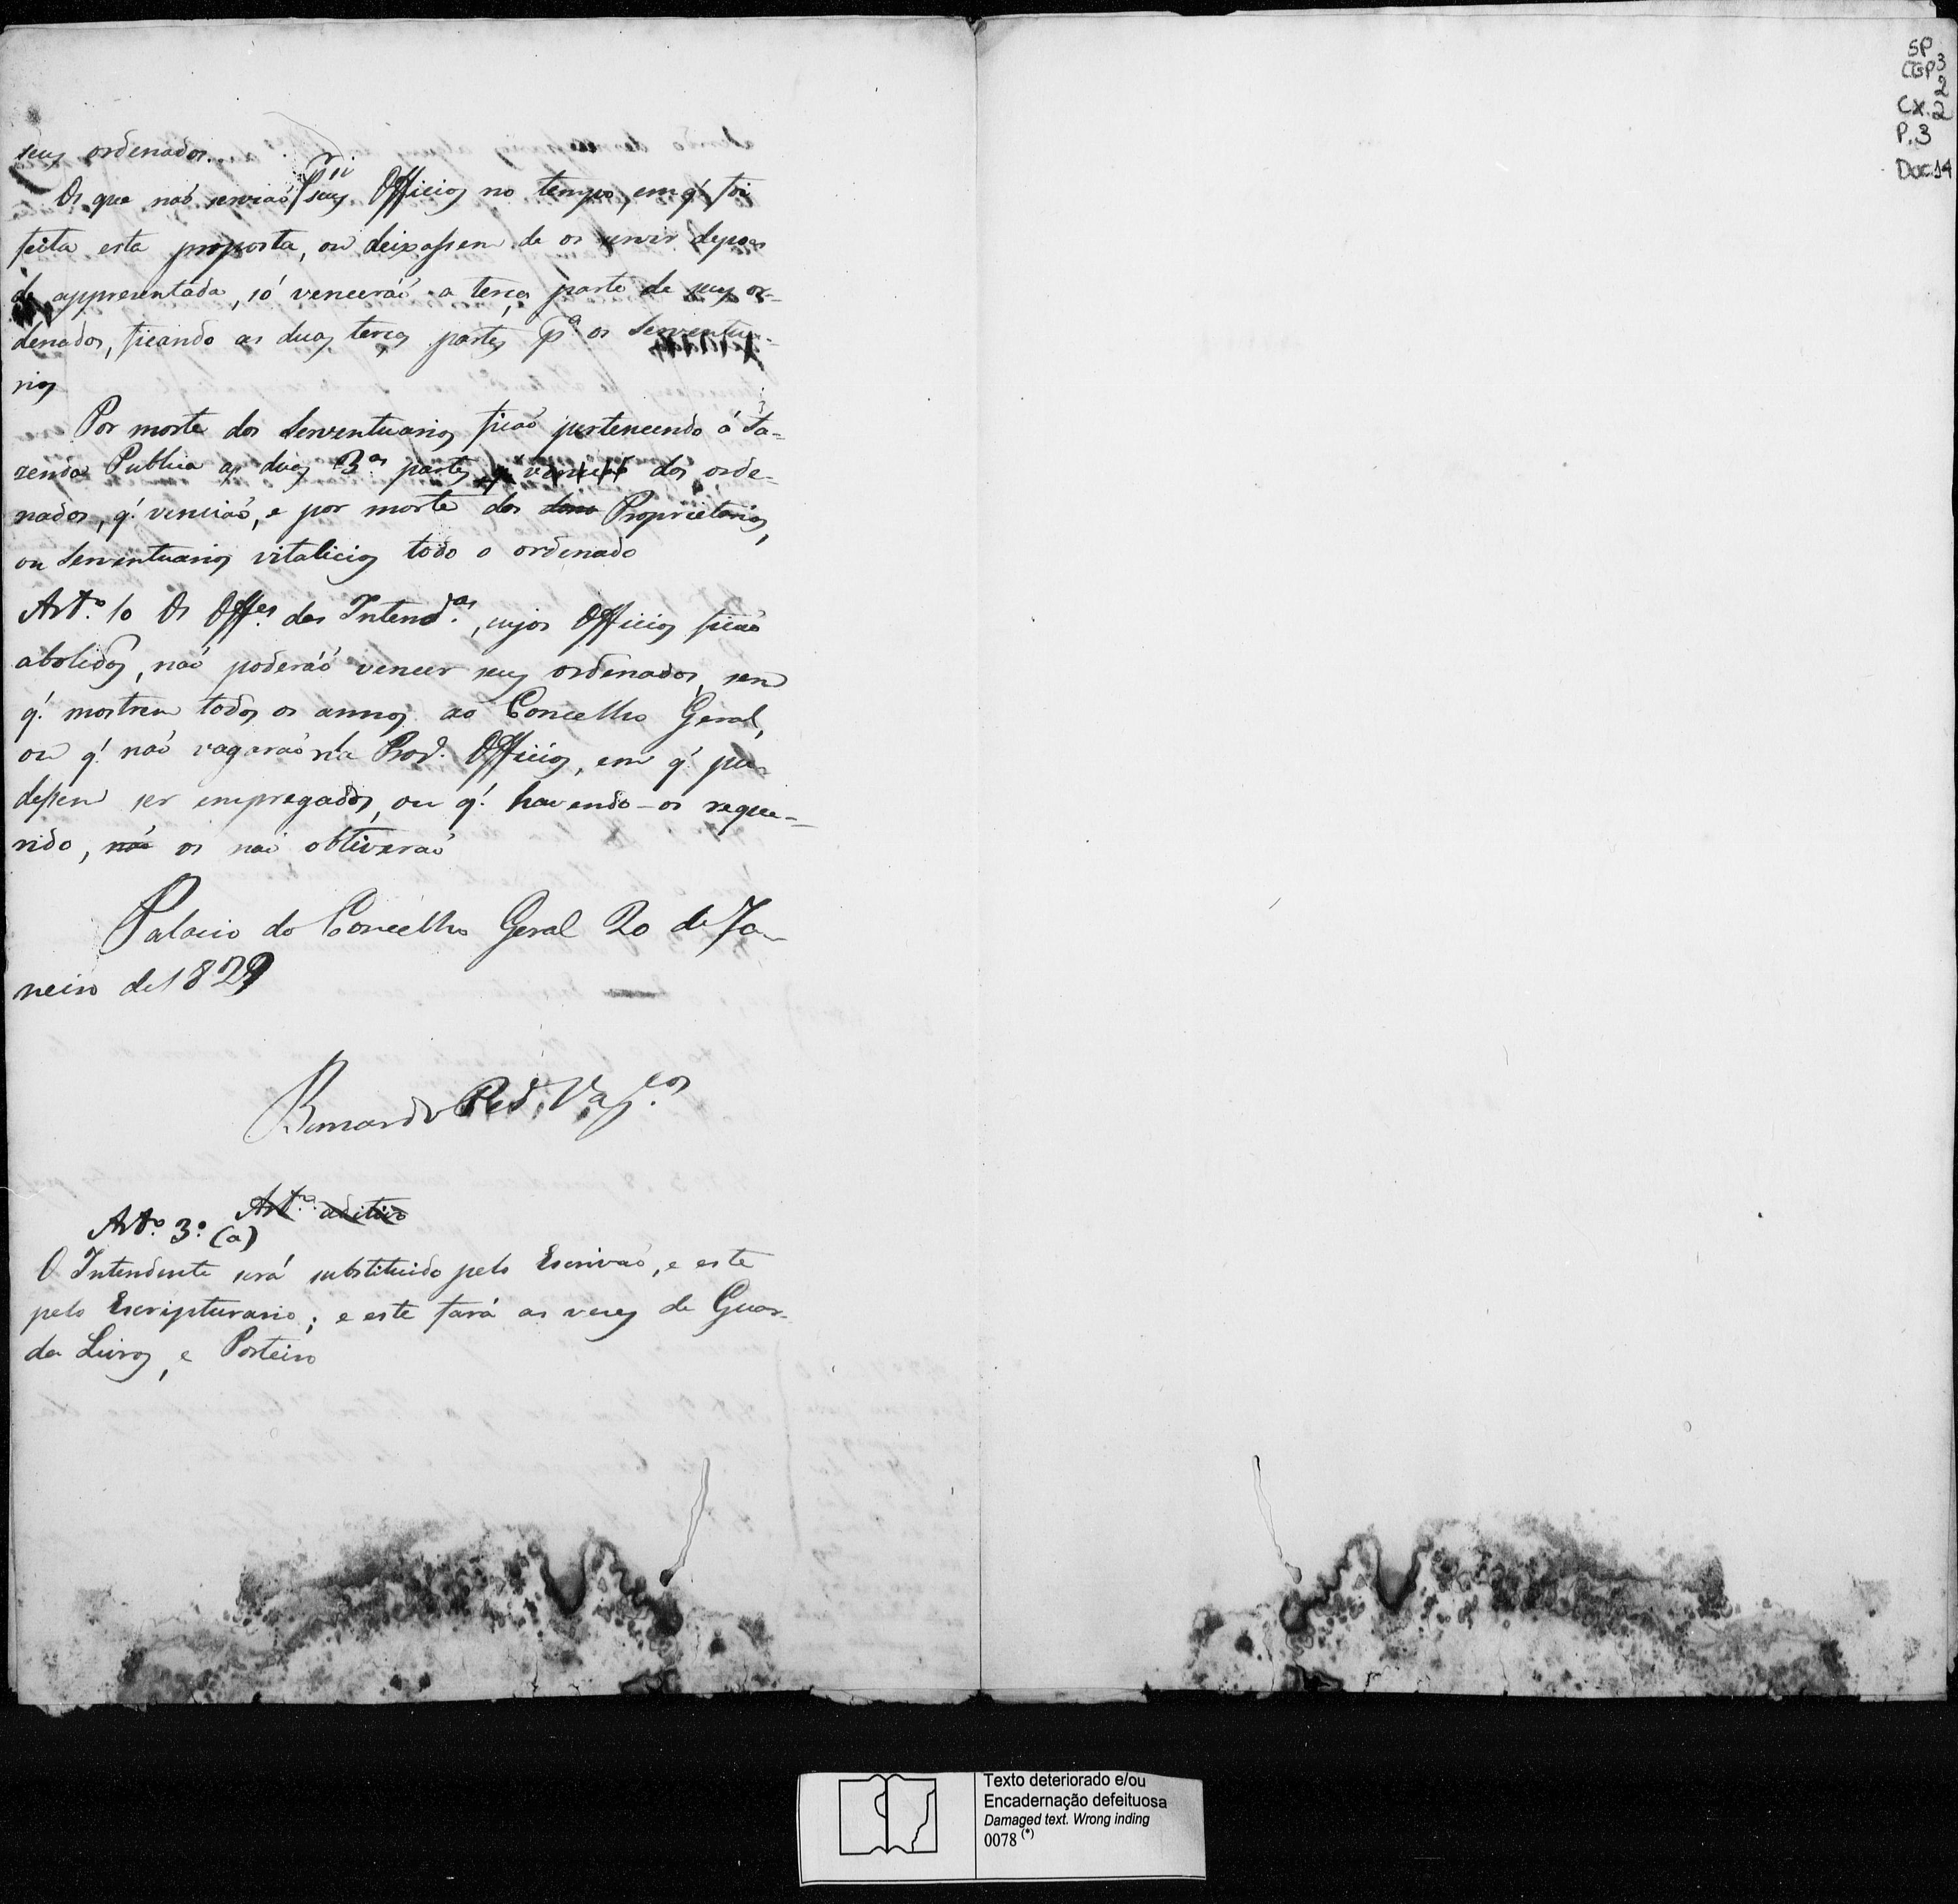 seus ordenados.
Os que naõ serviaõ seus Officios no tempo, em q' foi
feita esta proposta, ou deixassem de os servir depois
de appresentada, só venceráõ a terça parte de seus or-
denados, ficando as duas terças partes pª os Serventua-
rios
Por morte dos Serventuarios ficaõ pertencendo á Fa-
zenda Publica as duas 3.as partes dos orde-
nados, q' venciaõ, e por morte dos Proprietarios,
ou Serventuarios vitalicios todo o ordenado
Art.º 10 Os Off.es das Intend.as, cujos Officios ficaõ
abolidos, naõ poderáõ vencer seus ordenados, sem
q' mostrem todos os annos ao Concelho Geral,
ou q' naõ vagaraõ na Prov.ª Officios, em q' pu-
dessem ser empregados, ou q' havendo-os reque-
rido, naõ os naõ obtiveraõ
Palacio do Concelho Geral 20 de Ja-
neiro de 1829
Bernardo P. de Vas.cos
Art.º aditivo
Art.º 3.º (a)
O Intendente será substituido pelo Escrivaõ, e este
pelo Escripturario; e este fará as vezes de Guar-
da Livros, e Porteiro
SP
CGP 3
2
Cx. 2
P. 3
Doc. 14
Texto deteriorado e/ou
Encadernação defeituosa
Damaged text. Wrong inding
0078 (*)